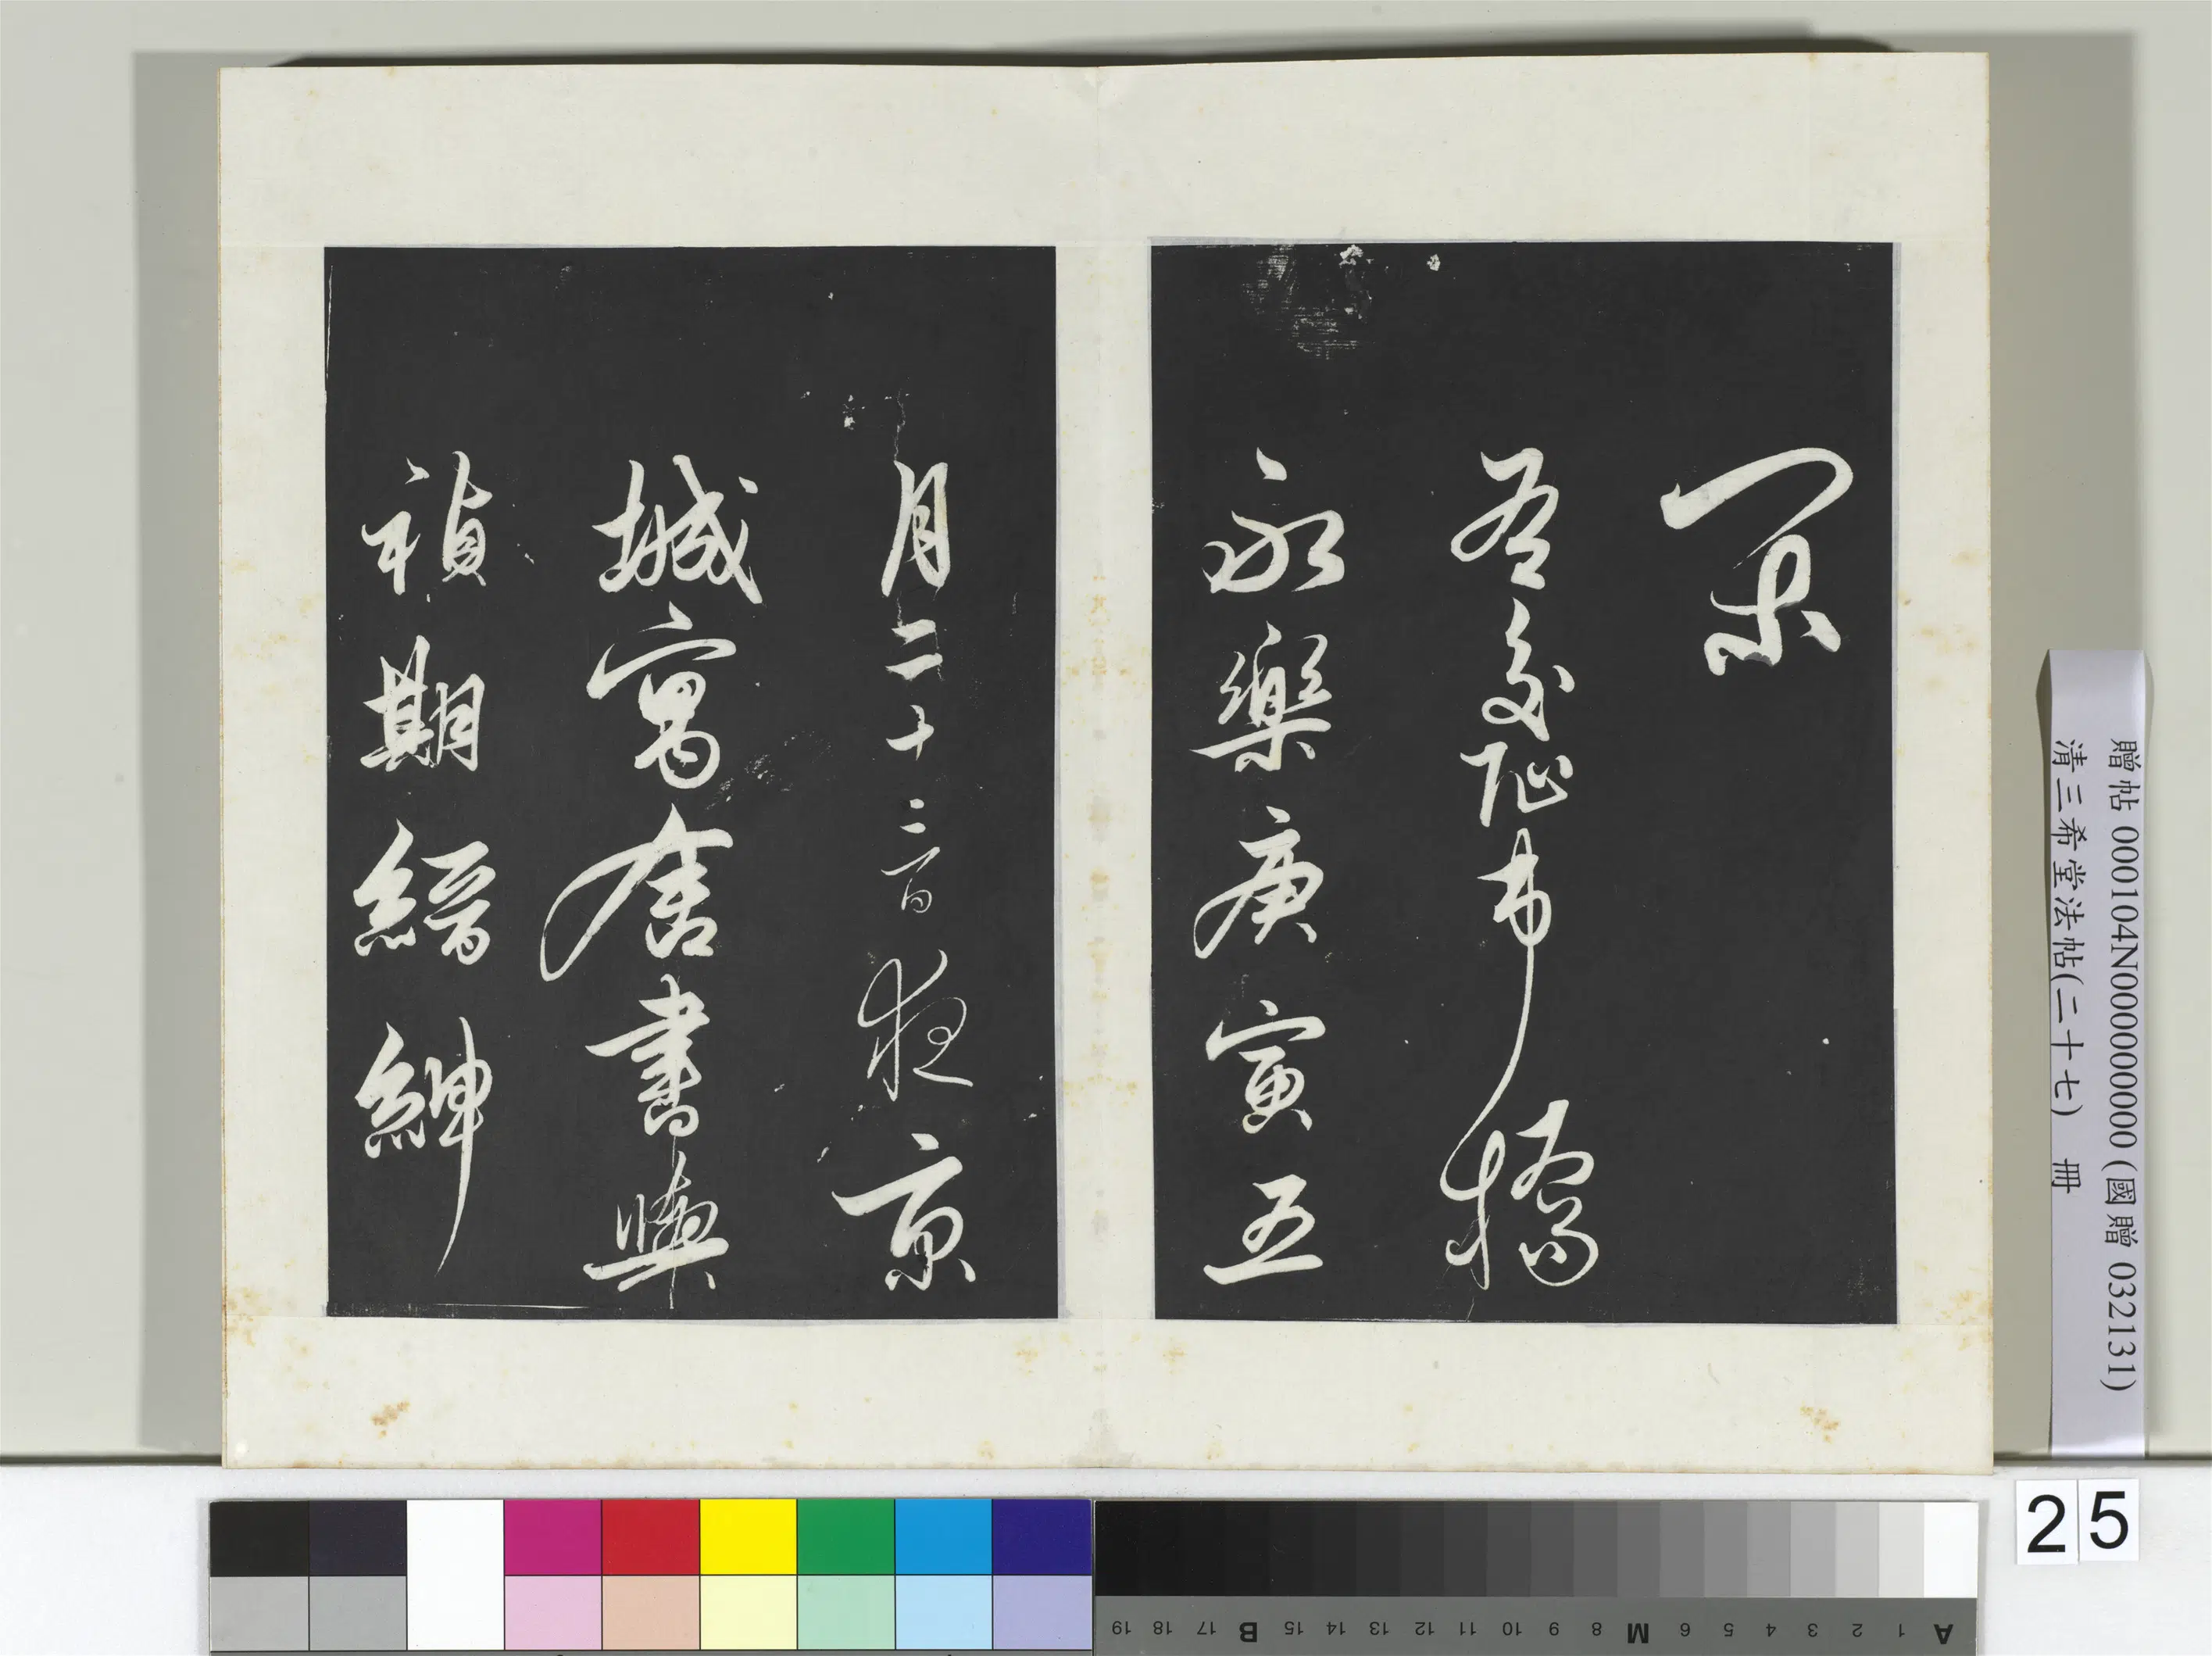 閑
右交阯市橋
永樂庚寅五
月二十三日夜京
城寓舍書與
禎期縉紳
贈帖 000104N000000000 (國贈 032131)
清三希堂法帖(二十七) 冊
25
A 1 2 3 4 5 6 M 8 9 10 11 12 13 14 15 B 17 18 19